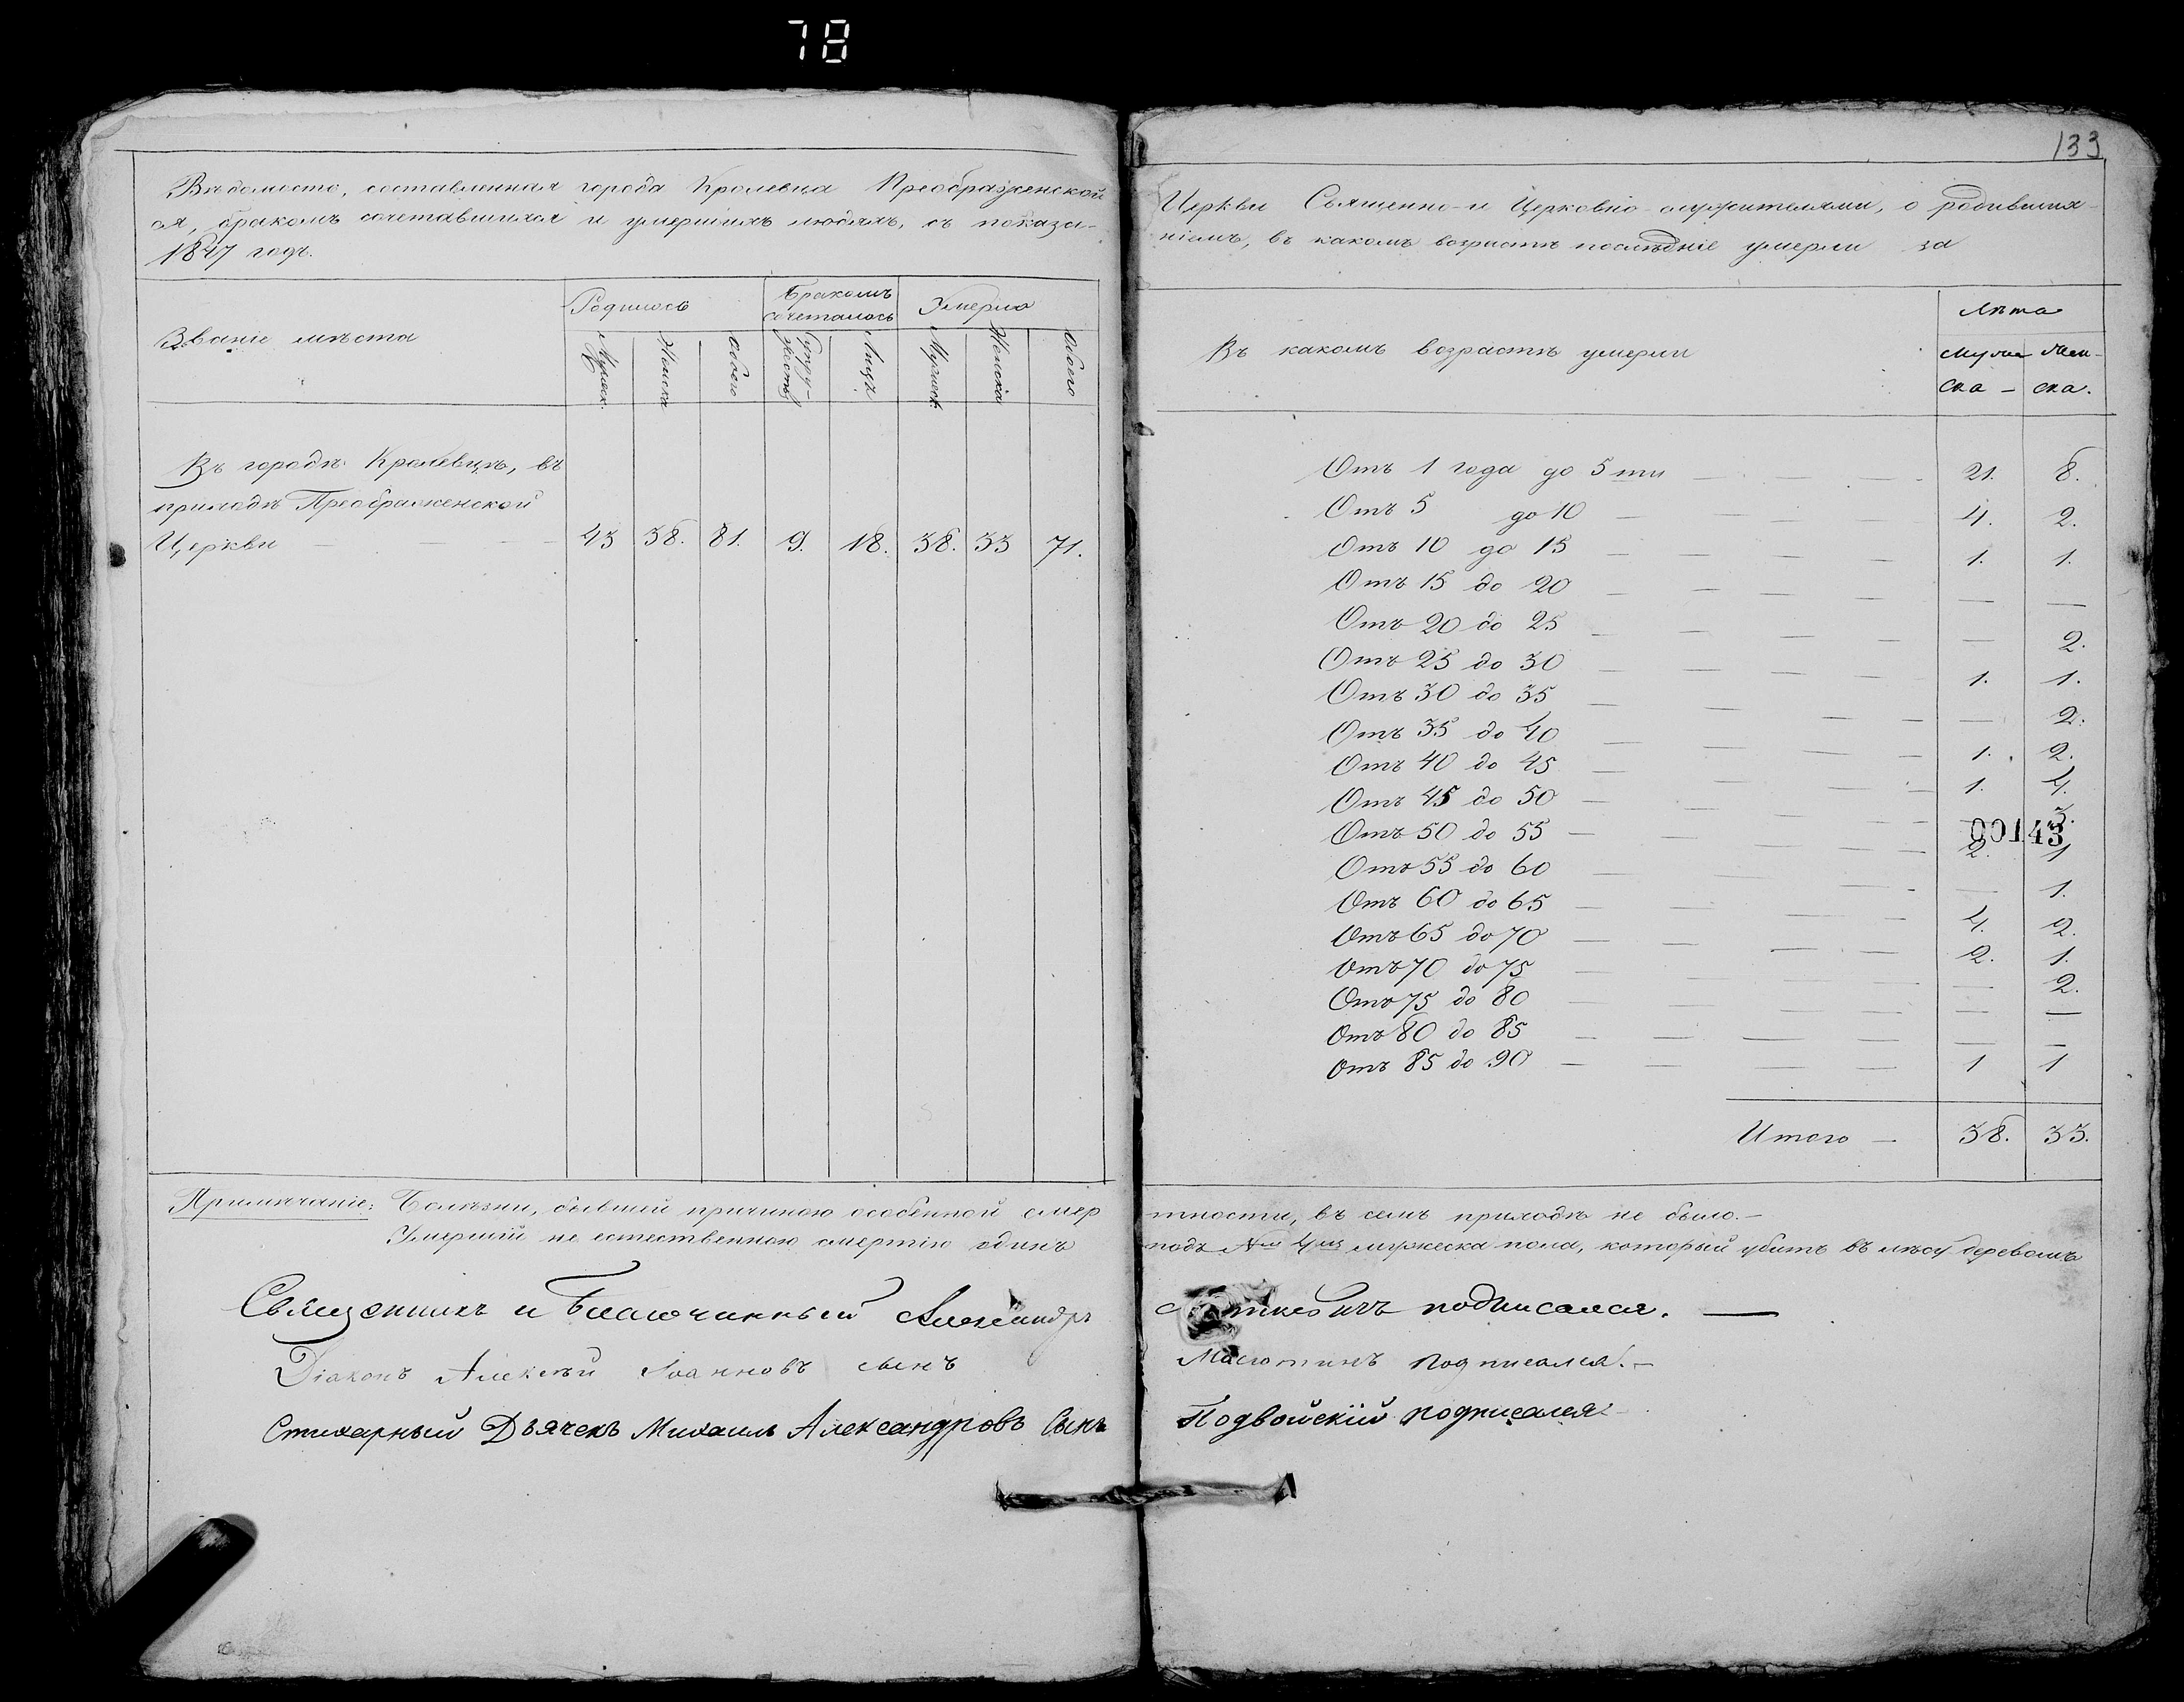 78
133
Вѣдомость, составленная города Кролевца Преображенской
ся, бракомъ сочетавшихся и умершихъ людяхъ, съ показа-
1847 годъ.
Званіе мѣста
Родилось
Бракомъ сочеталось
Умерло
Мужеск.
Женска
Обоего
Супру-жествъ
Лицъ
Мужеск.
Женска
Обоего
Въ городѣ Кролевцѣ, въ
приходѣ Преображенской
Церкви — 43 38. 81. 9. 18. 38. 33 71.
Церкви Священно- и Церковно-служителями, о родивших-
ніемъ, въ какомъ возрастѣ послѣдніе умерли за
Въ какомъ возрастѣ умерли
Лѣта
Мужеска — Женска.
Отъ 1 года до 5 ти — 21. 8.
Отъ 5 до 10 — 4. 2.
Отъ 10 до 15 — 1. 1.
Отъ 15 до 20 — — —
Отъ 20 до 25 — — 2.
Отъ 25 до 30 — 1. 1.
Отъ 30 до 35 — — 2.
Отъ 35 до 40 — 1. 2.
Отъ 40 до 45 — 1. 4.
Отъ 45 до 50 — — 3.
00143
Отъ 50 до 55 — 2. 1
Отъ 55 до 60 — — 1.
Отъ 60 до 65 — 4. 2.
Отъ 65 до 70 — 2. 1.
Отъ 70 до 75 — — 2.
Отъ 75 до 80 — — —
Отъ 80 до 85 — — —
Отъ 85 до 90 — 1 1
Итого — 38. 33.
Примѣчаніе: Болѣзни, бывшей причиною особенной смер
тности, въ семъ приходѣ не было.—
Умершій не естественною смертію одинъ
подъ № 4мъ мужеска пола, который убитъ въ лѣсу деревомъ
Священникъ и Благочинный Александръ
подписался. —
Діаконъ Алексѣй Іоанновъ сынъ
Масютинъ подписался.—
Стихарный Дьячекъ Михаилъ Александровъ Сынъ
Подвойскій подписался